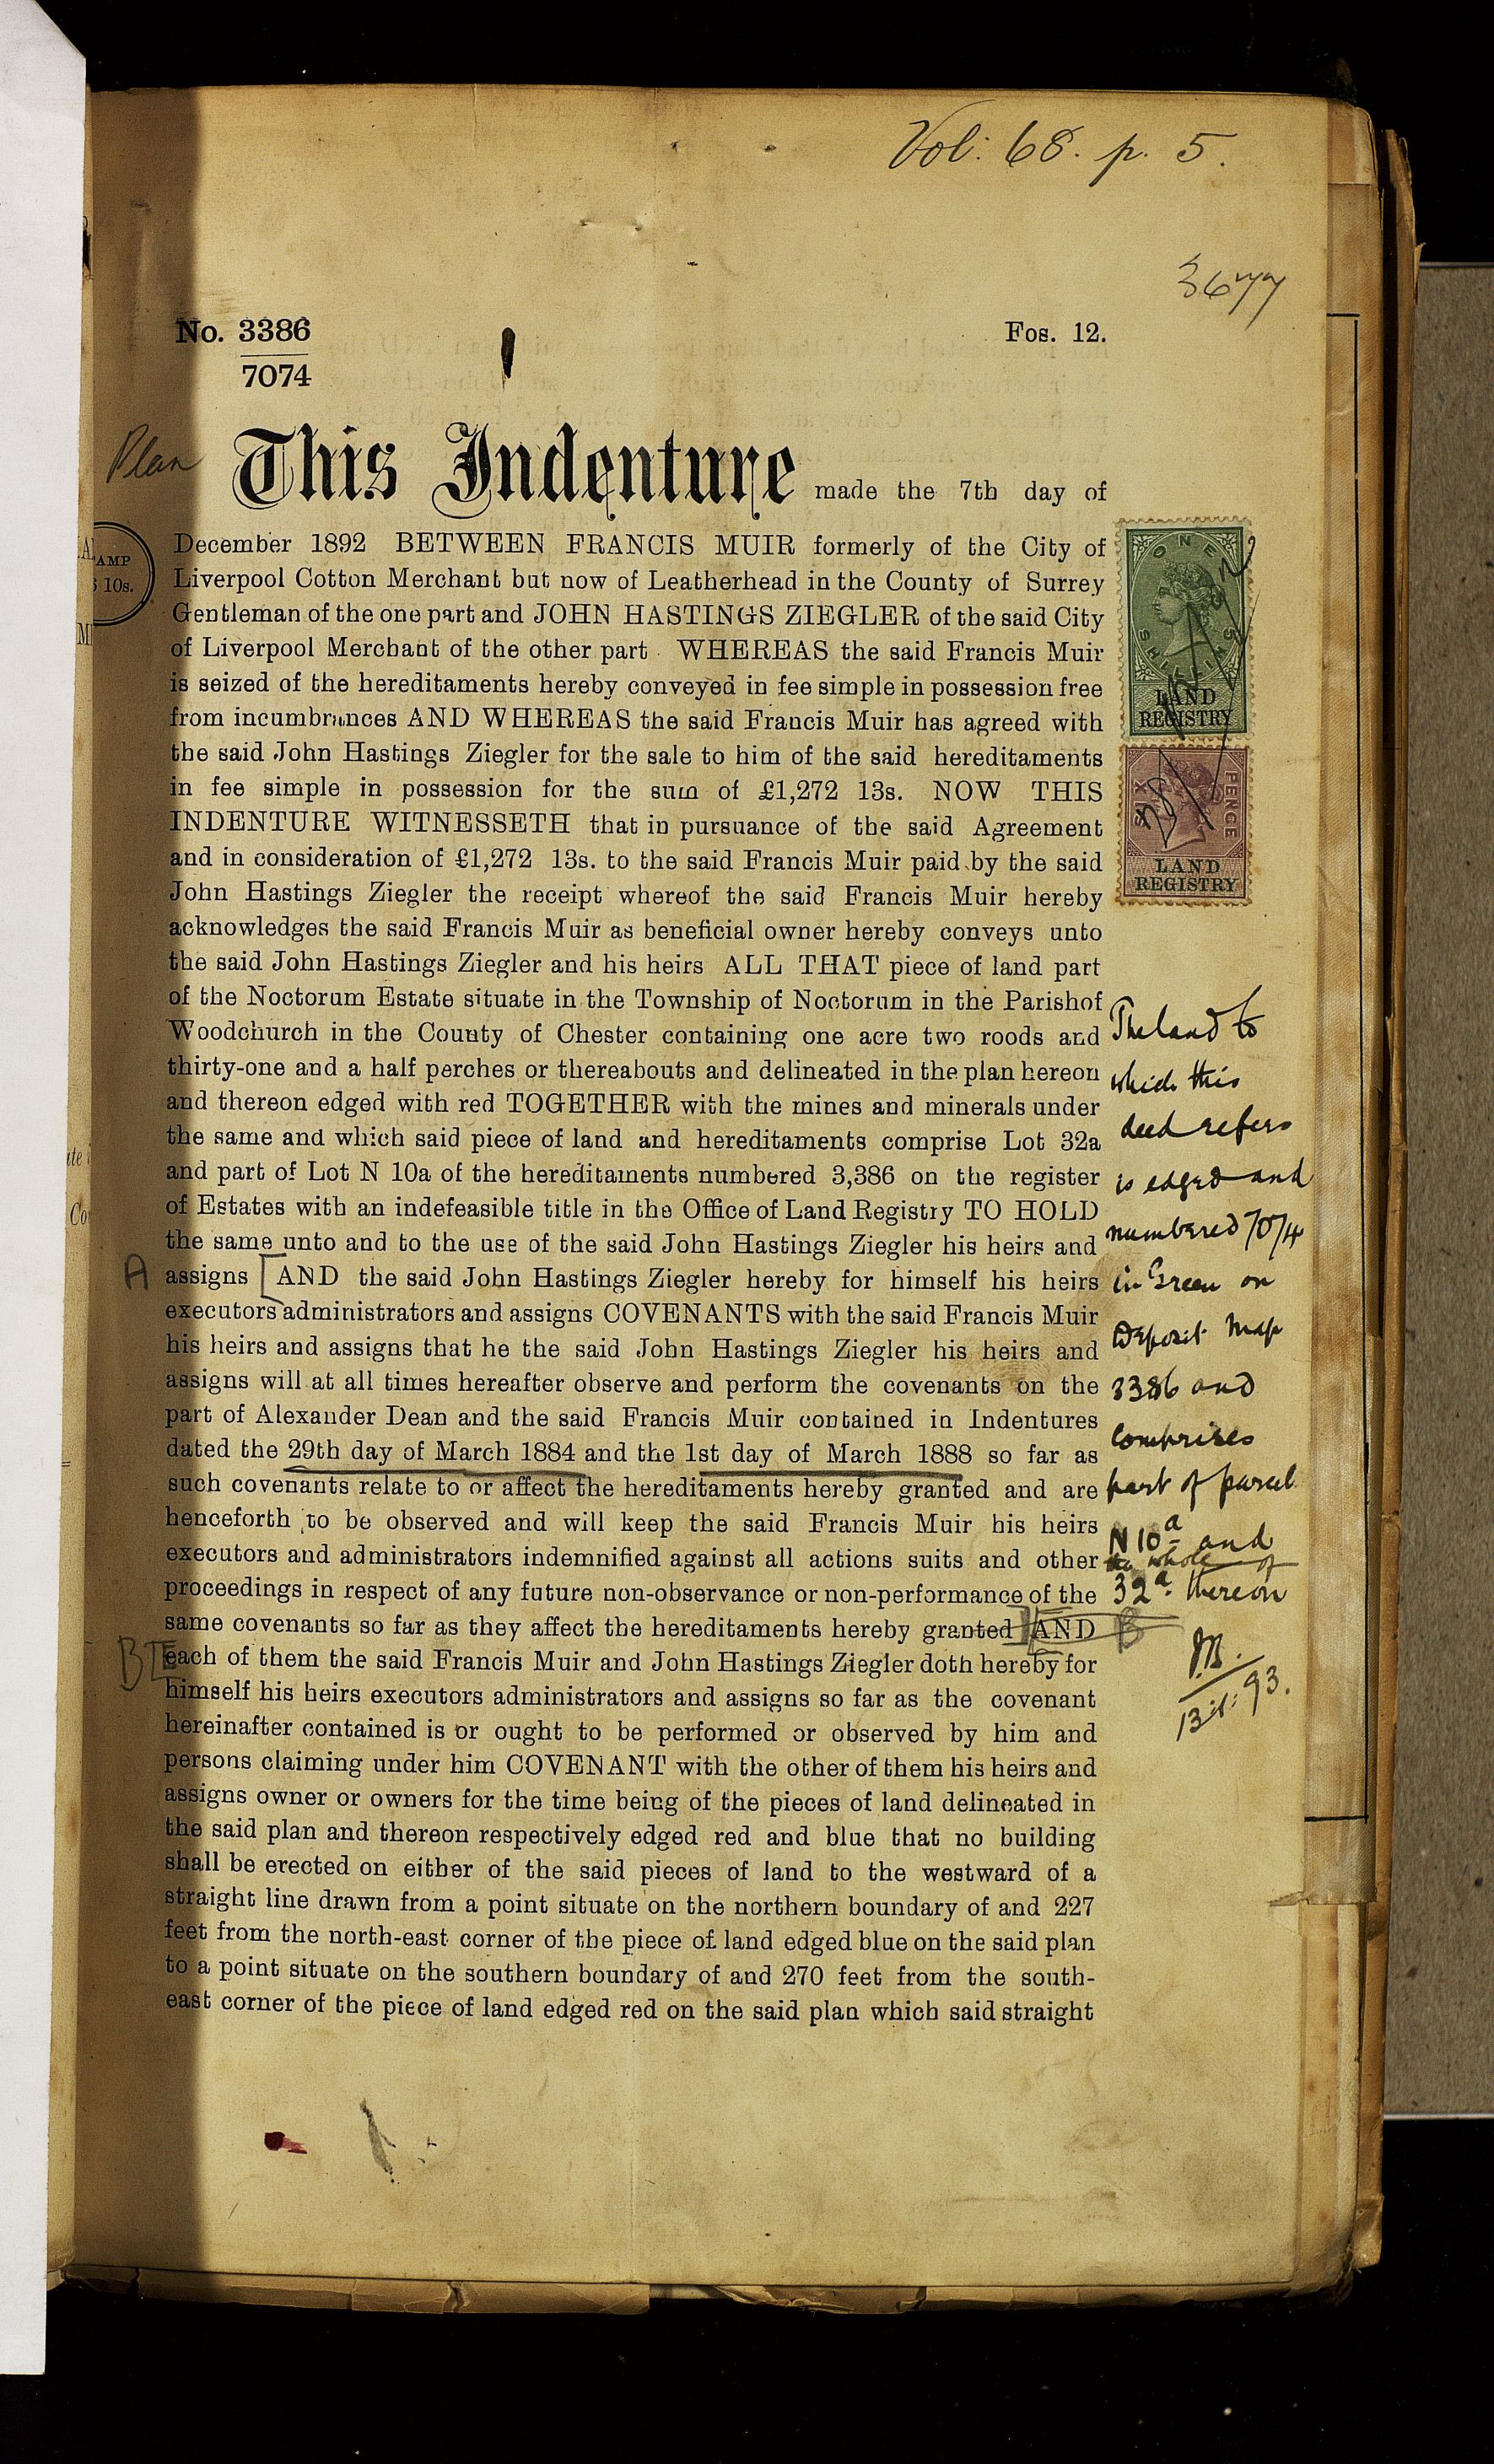 Vol: 68. p. 5.
3677
No. 3386
7074
Fos. 12.
Plan
This Indenture made the 7th day of
December 1892 BETWEEN FRANCIS MUIR formerly of the City of
Liverpool Cotton Merchant but now of Leatherhead in the County of Surrey
Gentleman of the one part and JOHN HASTINGS ZIEGLER of the said City
of Liverpool Merchant of the other part WHEREAS the said Francis Muir
is seized of the hereditaments hereby conveyed in fee simple in possession free
from incumbrances AND WHEREAS the said Francis Muir has agreed with
the said John Hastings Ziegler for the sale to him of the said hereditaments
in fee simple in possession for the sum of £1,272 13s. NOW THIS
INDENTURE WITNESSETH that in pursuance of the said Agreement
and in consideration of £1,272 13s. to the said Francis Muir paid by the said
John Hastings Ziegler the receipt whereof the said Francis Muir hereby
acknowledges the said Francis Muir as beneficial owner hereby conveys unto
the said John Hastings Ziegler and his heirs ALL THAT piece of land part
of the Noctorum Estate situate in the Township of Noctorum in the Parishof
Woodchurch in the County of Chester containing one acre two roods and
thirty-one and a half perches or thereabouts and delineated in the plan hereon
and thereon edged with red TOGETHER with the mines and minerals under
the same and which said piece of land and hereditaments comprise Lot 32a
and part of Lot N 10a of the hereditaments numbered 3,386 on the register
of Estates with an indefeasible title in the Office of Land Registry TO HOLD
the same unto and to the use of the said John Hastings Ziegler his heirs and
A assigns [AND the said John Hastings Ziegler hereby for himself his heirs
executors administrators and assigns COVENANTS with the said Francis Muir
his heirs and assigns that he the said John Hastings Ziegler his heirs and
assigns will at all times hereafter observe and perform the covenants on the
part of Alexander Dean and the said Francis Muir contained in Indentures
dated the 29th day of March 1884 and the 1st day of March 1888 so far as
such covenants relate to or affect the hereditaments hereby granted and are
henceforth to be observed and will keep the said Francis Muir his heirs
executors and administrators indemnified against all actions suits and other
proceedings in respect of any future non-observance or non-performance of the
same covenants so far as they affect the hereditaments hereby granted] [AND B
B each of them the said Francis Muir and John Hastings Ziegler doth hereby for
himself his heirs executors administrators and assigns so far as the covenant
hereinafter contained is or ought to be performed or observed by him and
persons claiming under him COVENANT with the other of them his heirs and
assigns owner or owners for the time being of the pieces of land delineated in
the said plan and thereon respectively edged red and blue that no building
shall be erected on either of the said pieces of land to the westward of a
straight line drawn from a point situate on the northern boundary of and 227
feet from the north-east corner of the piece of land edged blue on the said plan
to a point situate on the southern boundary of and 270 feet from the south-
east corner of the piece of land edged red on the said plan which said straight
ONE SHILLING
LAND
REGISTRY
SIX PENCE
LAND
REGISTRY
The land to
which this
deed refers
is edged and
numbered 7074
in Green on
Deposit Map
3386 and
Comprises
part of parcel
N 10a and
the whole of
32a thereon
93.
AMP
10s.